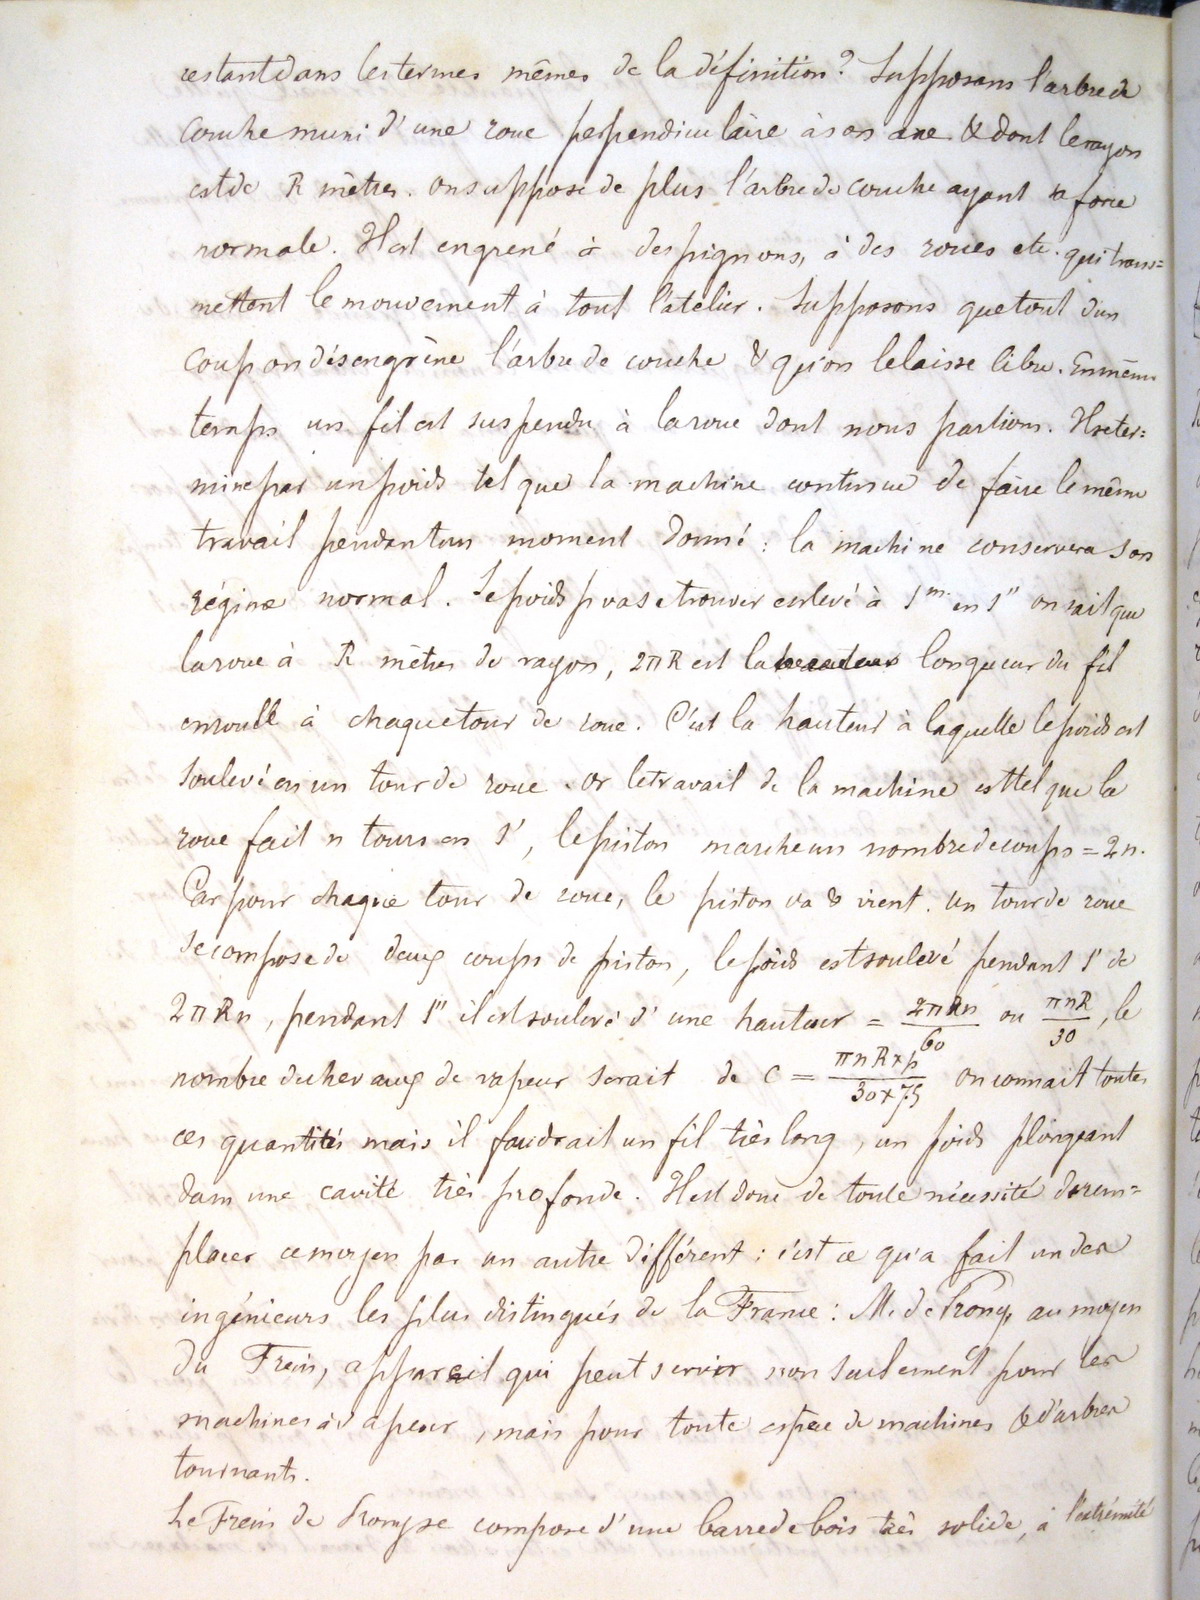 restant dans les termes mêmes de la définition? Supposons l'arbre de
couche muni d'une roue perpendiculaire à son axe & dont le rayon
est de R mètres. on suppose de plus l'arbre de couche ayant sa force
normale. Il est engrené à des pignons, à des roues etc. qui trans=
mettent le mouvement à tout l'atelier. Supposons que tout d'un
coup on désengrène l'arbre de couche & qu'on le laisse libre. En même
temps un fil est suspendu à la roue dont nous parlions. Il se ter=
mine par un poids tel que la machine continue de faire le même
travail pendant un moment donné : la machine conservera son
régime normal. Le poids p va se trouver enlevé à 1m. en 1" on sait que
la roue à R mètres de rayon, 2πR est la longueur du fil
enroulé à chaque tour de roue. C'est la hauteur à laquelle le poids est
soulevé en un tour de roue. Or le travail de la machine est tel que la
roue fait n tours en 1', le piston marche un nombre de coups = 2n.
Car pour chaque tour de roue, le piston va & vient. Un tour de roue
se compose de deux coups de piston, le poids est soulevé pendant 1' de
2πRn, pendant 1" il est soulevé d'une hauteur = 2πRn/60 ou πnR/30, le
nombre de chevaux de vapeur serait de C = πnR×p/30×75 On connait toutes
ces quantités mais il faudrait un fil très long, un poids plongeant
dans une cavité très profonde. Il est donc de toute nécessité de rem=
placer ce moyen par un autre différent : c'est ce qu'a fait un des
ingénieurs les plus distingués de la France : M. de Prony, au moyen
du Frein, appareil qui peut servir non seulement pour les
machines à vapeur, mais pour toute espèce de machines & d'arbres
tournants.
Le Frein de Prony se compose d'une barre de bois très solide, à l'extrémité